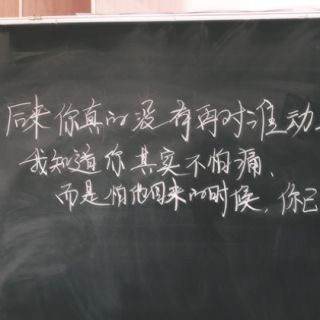 后来你真的没有再对谁动
我知道你其实不怕痛、
而是怕他回来的时候,你已